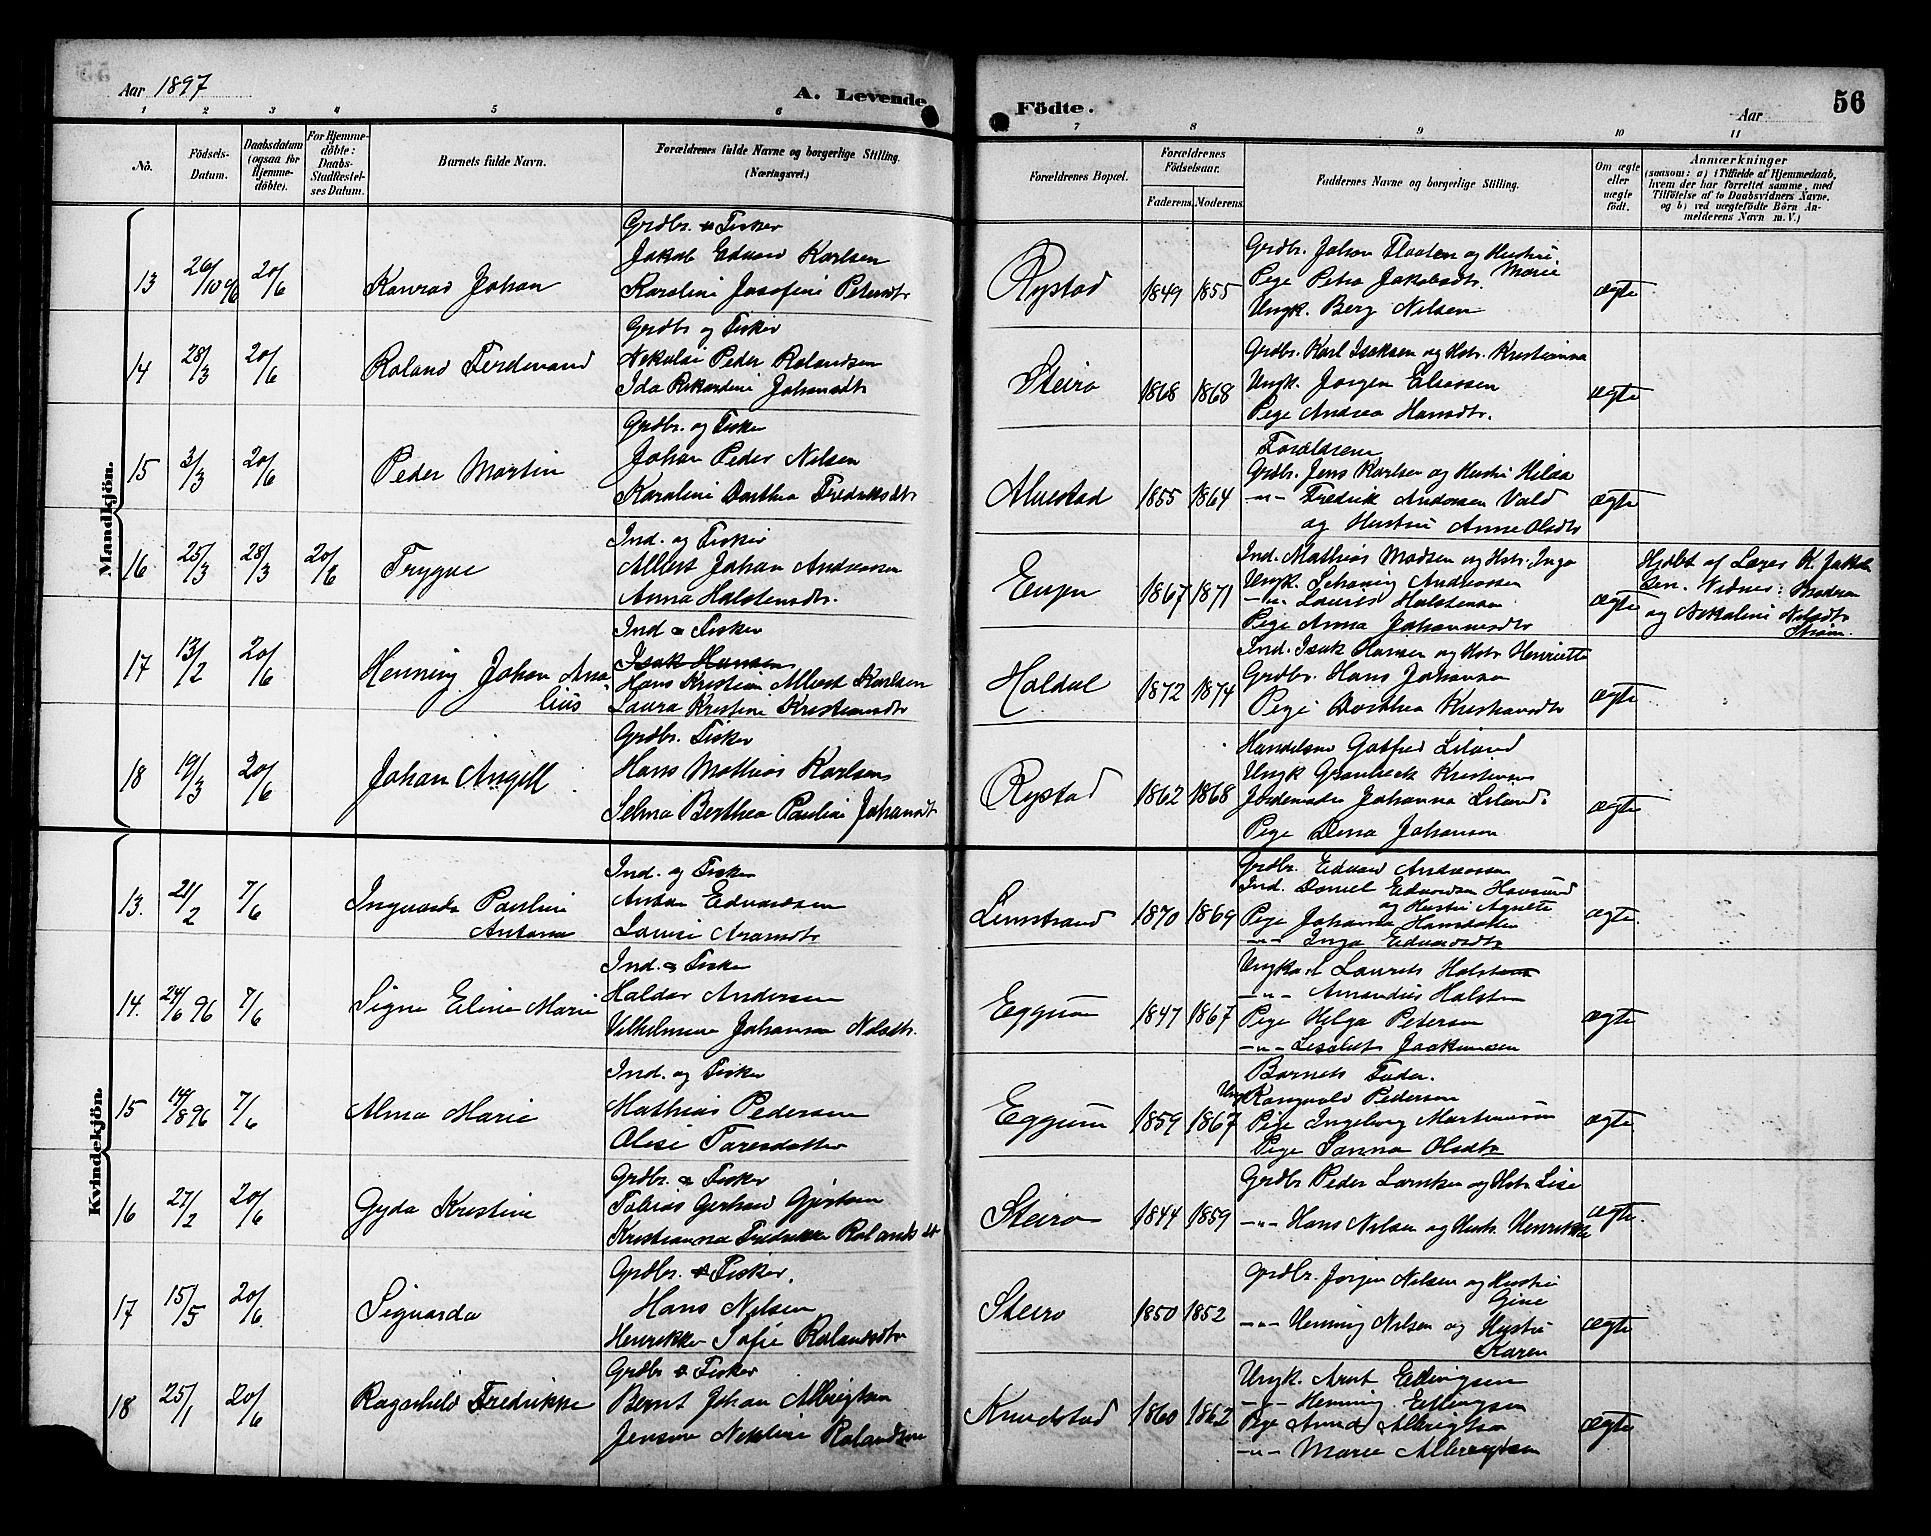 Aar 1897
A. Levende Födte.
Aar
56
1 2 3 4 5 6 7 8 9 10 11
No.
Födsels-
Datum.
Daabsdatum
(ogsaa for
Hjemme-
döbte).
For Hjemme-
döbte:
Daabs-
Stadfæstel-
ses Datum.
Barnets fulde Navn.
Forældrenes fulde Navne og borgerlige Stilling.
(Næringsvei.)
Forældrenes Bopæl.
Forældrenes
Födselsaar.
Faderens. Moderens.
Faddernes Navne og borgerlige Stilling.
Om ægte
eller
uægte
født.
Anmærkninger
(saasom: a) i Tilfælde af Hjemmedaab,
hvem der har forrettet samme, med
Tilföielse af to Daabsvidners Navne,
og b) ved uægtefödte Börn An-
melderens Navn m. V.)
Mandkjön.
13 26/10 96 20/6 Konrad Johan
Grdbr. & Fisker
Jakob Edvard Karlsen
Karoline Josefine Petersdtr
Rystad 1849 1855
Grdbr. Johan Flaaten og Hustru
Marie
Pige Petra Jakobsdtr.
Ungk. Berg Nilsen
ægte
14 28/3 20/6 Roland Ferdinand
Grdbr og Fisker
Nikolai Peder Rolandsen
Ida Rikardine Johansdtr
Steiro 1868 1868
Grdbr. Karl Isaksen og Hstr. Kristianna
Ungk. Jørgen Eliassen
Pige Andrea Hansdtr.
ægte
15 3/3 20/6 Peder Martin
Grdbr. og Fisker
Johan Peder Nilsen
Karoline Dorthea Fredriksdtr
Alvestad 1855 1864
Forældrene
Grdbr. Jens Karlsen og Hustru Hilda
-"- Fredrik Andersen Vold
og Hustru Anne Olsdtr
ægte
16 25/3 28/3 20/6 Trygve
Ind. og Fisker
Albert Johan Andreassen
Anna Halstensdtr.
Eugen 1867 1871
Ind. Mathias Madsen og Hstr. Inga
Ungk. Andreassen
-"- Laurits Halstensen
Pige Anna Johannesdtr
ægte
Hjdøbt af Lærer K. Jakob
sen. Vidner:
og Nikoline Nilsdtr
Strøm.
17 13/2 20/6 Henning Johan Ama-
lius
Ind & Fisker
Isak Hansen
Hans Kristian Albert Karlsen
Laura Kristine Kristiansdtr
Holdal 1872 1874
Ind. Isak Hansen og Hstr Henriette
Grdbr. Hans Johansen
Pige Dorthea Kristiansdtr
ægte
18 19/3 20/6 Johan Angell
Grdbr. Fisker
Hans Mathias Karlsen
Selma Berthea Pauline Johansdtr
Rystad 1862 1868
Handelsm Gotfred Liland
Ungk Grønbeck Kristensen
Jordemoder Johanna Liland.
Pige Dena Johansen
ægte
Kvindekjön.
13. 21/2 7/6 Ingvarda Pauline
Antona
Ind. og Fisker
Anton Edvardsen
Lovise Aronsdtr
Limstrand 1870 1869
Grdbr. Edvard Andreassen
Ind. Daniel Edvardsen Hausund
og Hustru Agnete
Pige Johanna Hansdatter
-"- Inga Edvardsdtr
ægte
14. 24/6 96 7/6 Signe Eline Marie
Ind. & Fisker
Haldor Andersen
Vilhelmine Johanna Nilsdtr.
Eggum 1847 1867
Ungkarl Laurits Halstensen
-"- Amandus Halsten
Pige Helga Petersen
-"- Lisabet Joakimsen
ægte
15 14/8 96 7/6 Alma Marie
Ind. og Fisker
Mathias Pedersen
Olise Taresdatter
Eggum 1859 1867
Barnets Fader.
Ungk Rangvald Pedersen
Pige Ingeborg Martinussen
Pige Sanna Olsdtr
ægte
16 27/2 20/6 Gyda Kristine
Grdbr. & Fisker
Tobias Gerhard Gjertsen
Kristianna Fredrikke Rolandsdtr
Steiro 1844 1859
Grdbr Peder Larntzen og Hstr. Lise
-"- Hans Nilsen og Hustr. Henrikke
ægte.
17 15/5 20/6 Sigvarda
Grdbr. & Fisker.
Hans Nilsen
Henrikke Sofie Rolandsdtr
Steiro 1850 1852
Grdbr. Jørgen Nilsen og Hustru
Gine
-"- Henning Nilsen og Hustru
Karen
ægte
18 25/1 20/6 Ragnhild Fredrikke
Grdbr & Fisker
Bernt Johan Albrigtsen
Jensine Nikoline Rolandsen
Knudstad 1860 1862
Ungk. Arnt Ellingsen
-"- Henning Ellingsen
Pige Anna Albrigtsen
-"- Marie Albrigtsen
ægte